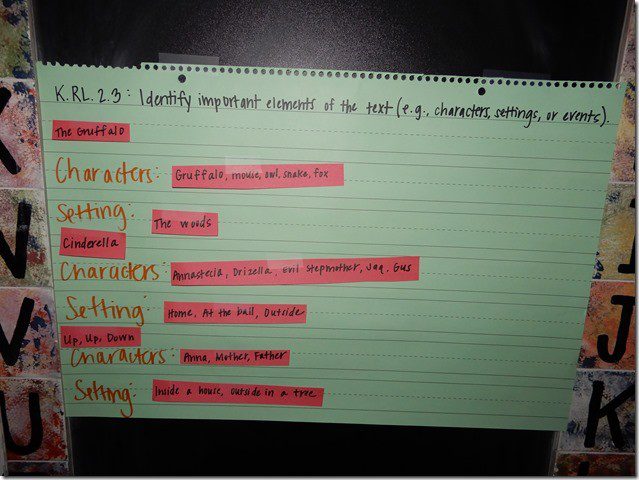 K.RL.2.3: Identify important elements of the text (e.g., characters, settings, or events).
The Gruffalo
Characters: Gruffalo, mouse, owl, snake, fox
Setting: The woods
Cinderella
Characters: Annastecia, Drizella, Evil Stepmother, Jaq, Gus
Setting: Home, At the ball, Outside
Up, Up, Down
Characters: Anna, Mother, Father
Setting: Inside a house, outside in a tree
K
N
V
U
J
K